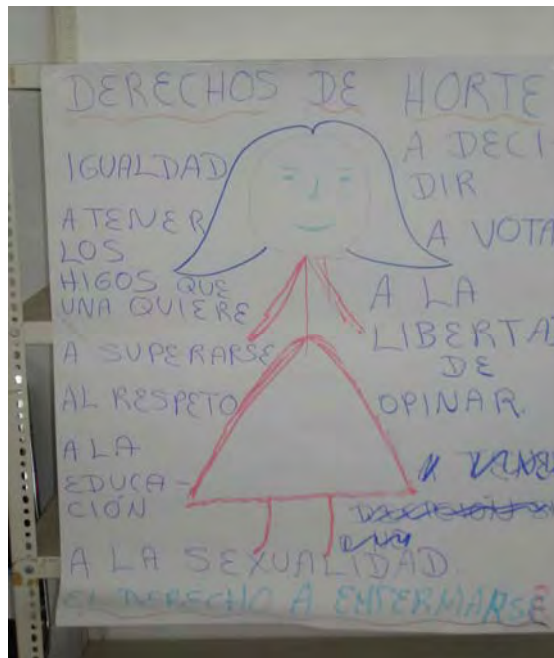 DERECHOS DE HORTE
IGUALDAD
A TENER
LOS
HIGOS QUE
UNA QUIERE
A SUPERARSE
AL RESPETO
A LA
EDUCA-
CIÓN
A DECI-
DIR
A VOTA
A LA
LIBERTAD
DE
OPINAR
A LA SEXUALIDAD
EL DERECHO A ENFERMARSE